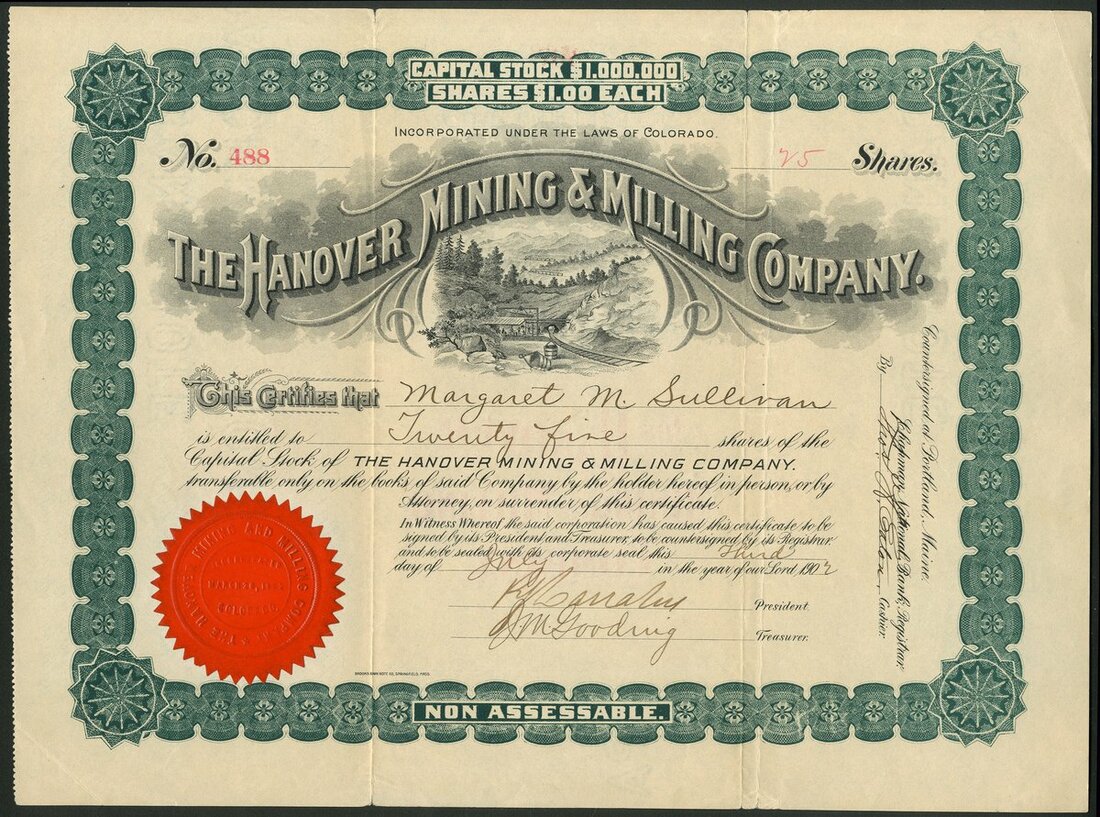 CAPITAL STOCK $1.000.000
SHARES $1.00 EACH
INCORPORATED UNDER THE LAWS OF COLORADO.
No. 488 25 Shares.
THE HANOVER MINING & MILLING COMPANY.
This Certifies that Margaret M Sullivan
is entitled to Twenty five shares of the
Capital Stock of THE HANOVER MINING & MILLING COMPANY.
transferable only on the books of said Company by the holder hereof in person, or by
Attorney, on surrender of this certificate.
In Witness Whereof the said corporation has caused this certificate to be
signed by its President and Treasurer, to be countersigned by its Registrar
and to be sealed with its corporate seal this Third
day of July in the year of our Lord 1902
President.
J M Gooding Treasurer.
Countersigned at Portland, Maine.
Chapman National Bank, Registrar
By Cashier.
THE HANOVER MINING AND MILLING COMPANY
COLORADO.
BROOKS BANK NOTE CO. SPRINGFIELD, MASS.
NON ASSESSABLE.